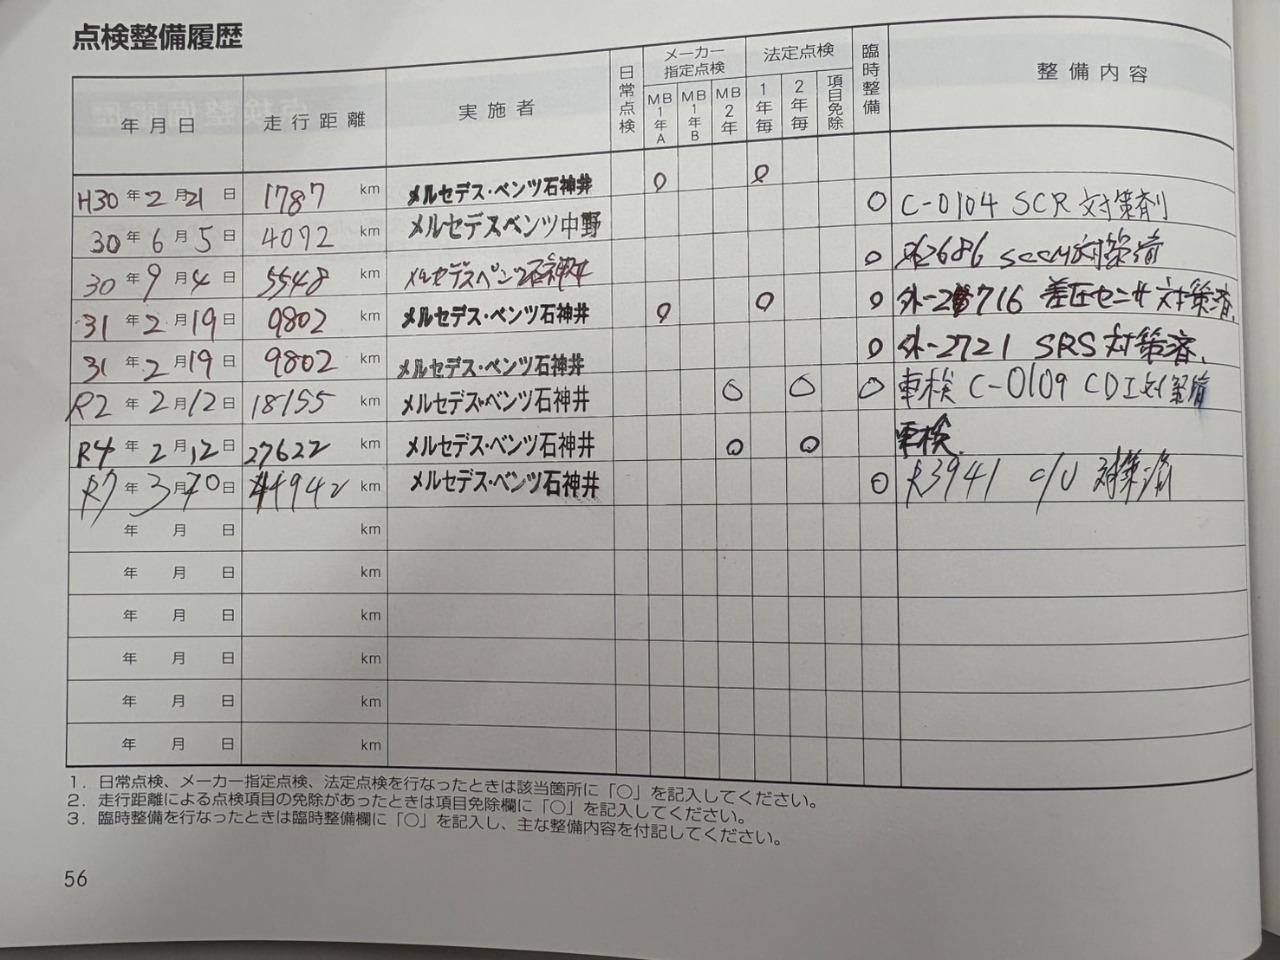 点検整備履歴
年月日 走行距離 実施者 日常点検 メーカー指定点検 法定点検 臨時整備 整備内容
MB1年A MB1年B MB2年 1年毎 2年毎 項目免除
H30年2月21日 1787 km メルセデス・ベンツ石神井 ○ ○
30年6月5日 4072 km メルセデスベンツ中野 ○ C-0104 SCR 対策剤
30年9月4日 5548 km メルセデスベンツ石神井 ○ 外2686 SCCM対策済
31年2月19日 9802 km メルセデス・ベンツ石神井 ○ ○ ○ 外-2716 差圧センサ対策済.
31年2月19日 9802 km メルセデス・ベンツ石神井 ○ 外-2721 SRS対策済.
R2年2月12日 18155 km メルセデス・ベンツ石神井 ○ ○ ○ 車検 C-0109 CDI
R4年2月12日 27622 km メルセデス・ベンツ石神井 ○ ○ 車検.
R7年3月 日 44942 メルセデス・ベンツ石神井 ○ R3941 C/U 対策済
年 月 日 km
年 月 日 km
年 月 日 km
年 月 日 km
年 月 日 km
年 月 日 km
1. 日常点検、メーカー指定点検、法定点検を行なったときは該当箇所に「○」を記入してください。
2. 走行距離による点検項目の免除があったときは項目免除欄に「○」を記入してください。
3. 臨時整備を行なったときは臨時整備欄に「○」を記入し、主な整備内容を付記してください。
56